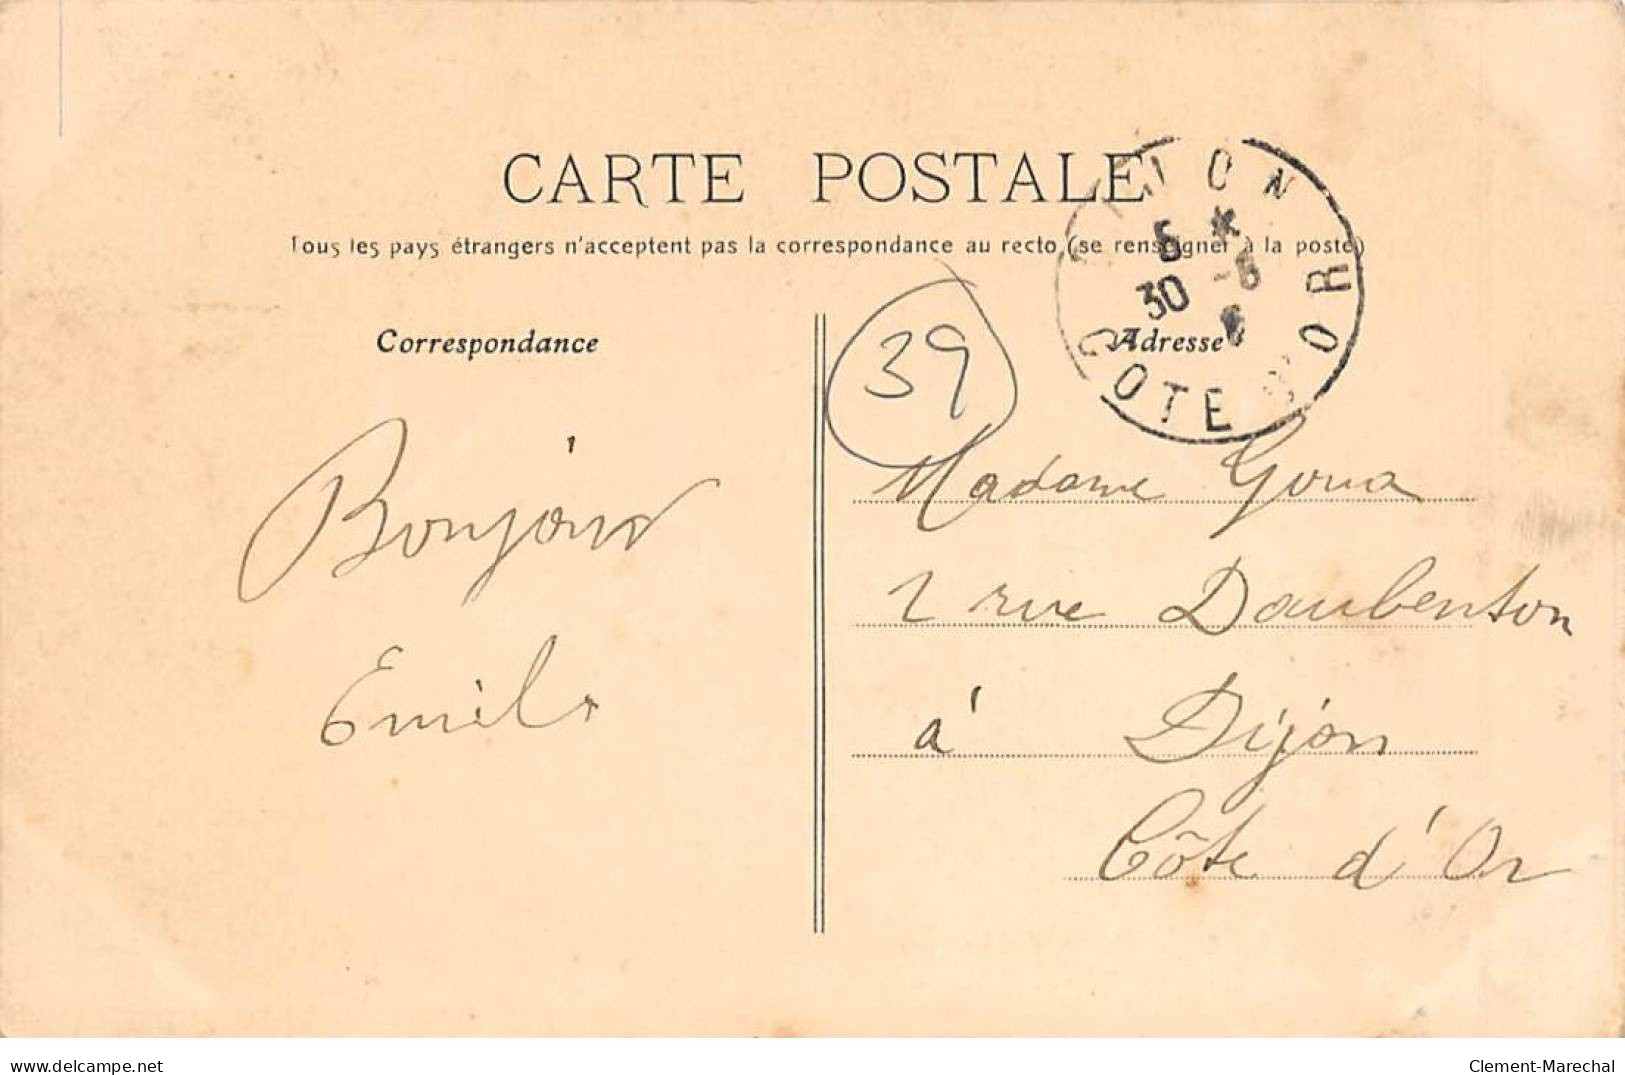 CARTE POSTALE
Tous les pays étrangers n'acceptent pas la correspondance au recto (se renseigner à la poste)
DIJON
5 *
30 -6
COTE D'OR
39
Correspondance
Adresse
Bonjour
Emile
Madame
2 rue Daubenton
à Dijon
Côte d'Or
delcampe.net
Clement-Marechal